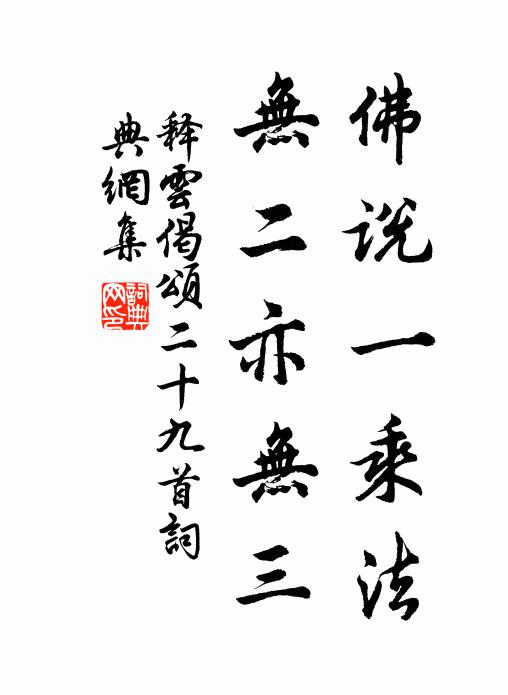 佛说一乘法
無二亦無三
释雲偈頌二十九首詞
典網集
詞典
网印